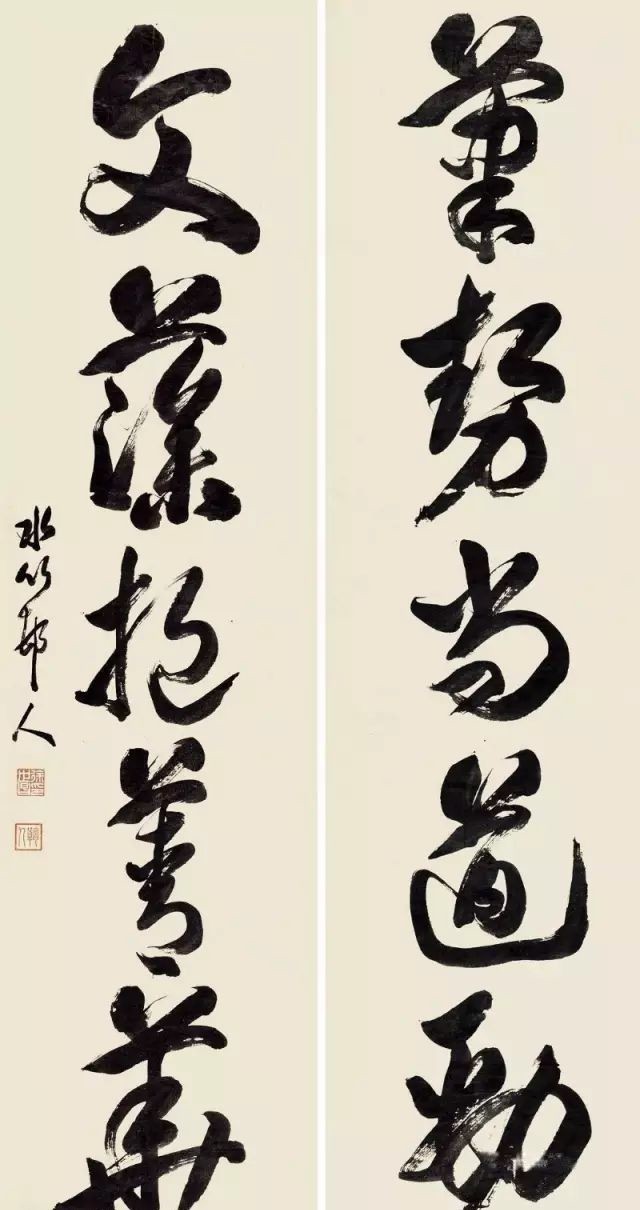 筆勢尚遒勁
文藻挹菁華
水竹邨人